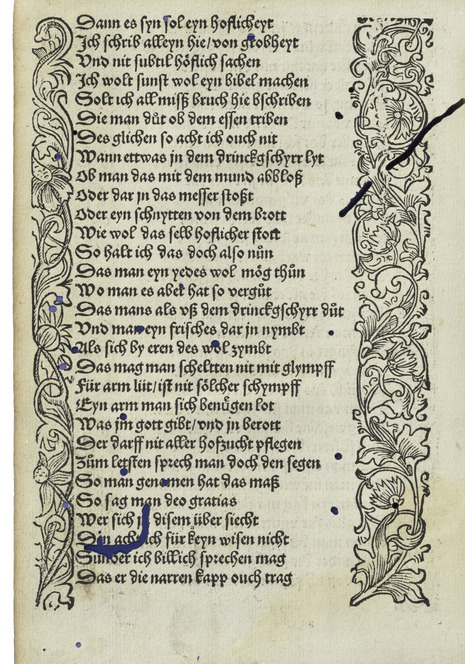 Dann es syn sol eyn hoflicheyt
Jch schrib alleyn hie/von grobheyt
Vnd nit subtil höflich sachen
Jch wolt sunst wol eyn bibel machen
Solt ich all mißbruch hie bschriben
Die man důt ob dem essen triben
Des glichen so acht ich ouch nit
Wann ettwas jn dem drinckgschyrr lyt
Ob man das mit dem mund abbloß
Oder dar jn das messer stoßt
Oder eyn schnytten von dem brott
Wie wol das selb hoflicher stott
So halt ich das doch also nůn
Das man eyn yedes wol mög thůn
Wo man es aber hat so vergůt
Das mans als vß dem drinckgschyrr důt
Vnd man eyn frisches dar jn nymbt
Als sich by eren des wol zymbt
Das mag man scheltten nit mit glympff
Für arm lüt/ist nit sölcher schympff
Eyn arm man sich benügen lot
Was jm gott gibt/vnd jn berott
Der darff nit aller hofzucht pflegen
Zům letsten sprech man doch den segen
So man genomen hat das maß
So sag man deo gratias
Wer sich jn disem über sicht
Den acht ich für keyn wisen nicht
Sunder ich billich sprechen mag
Das er die narren kapp ouch trag